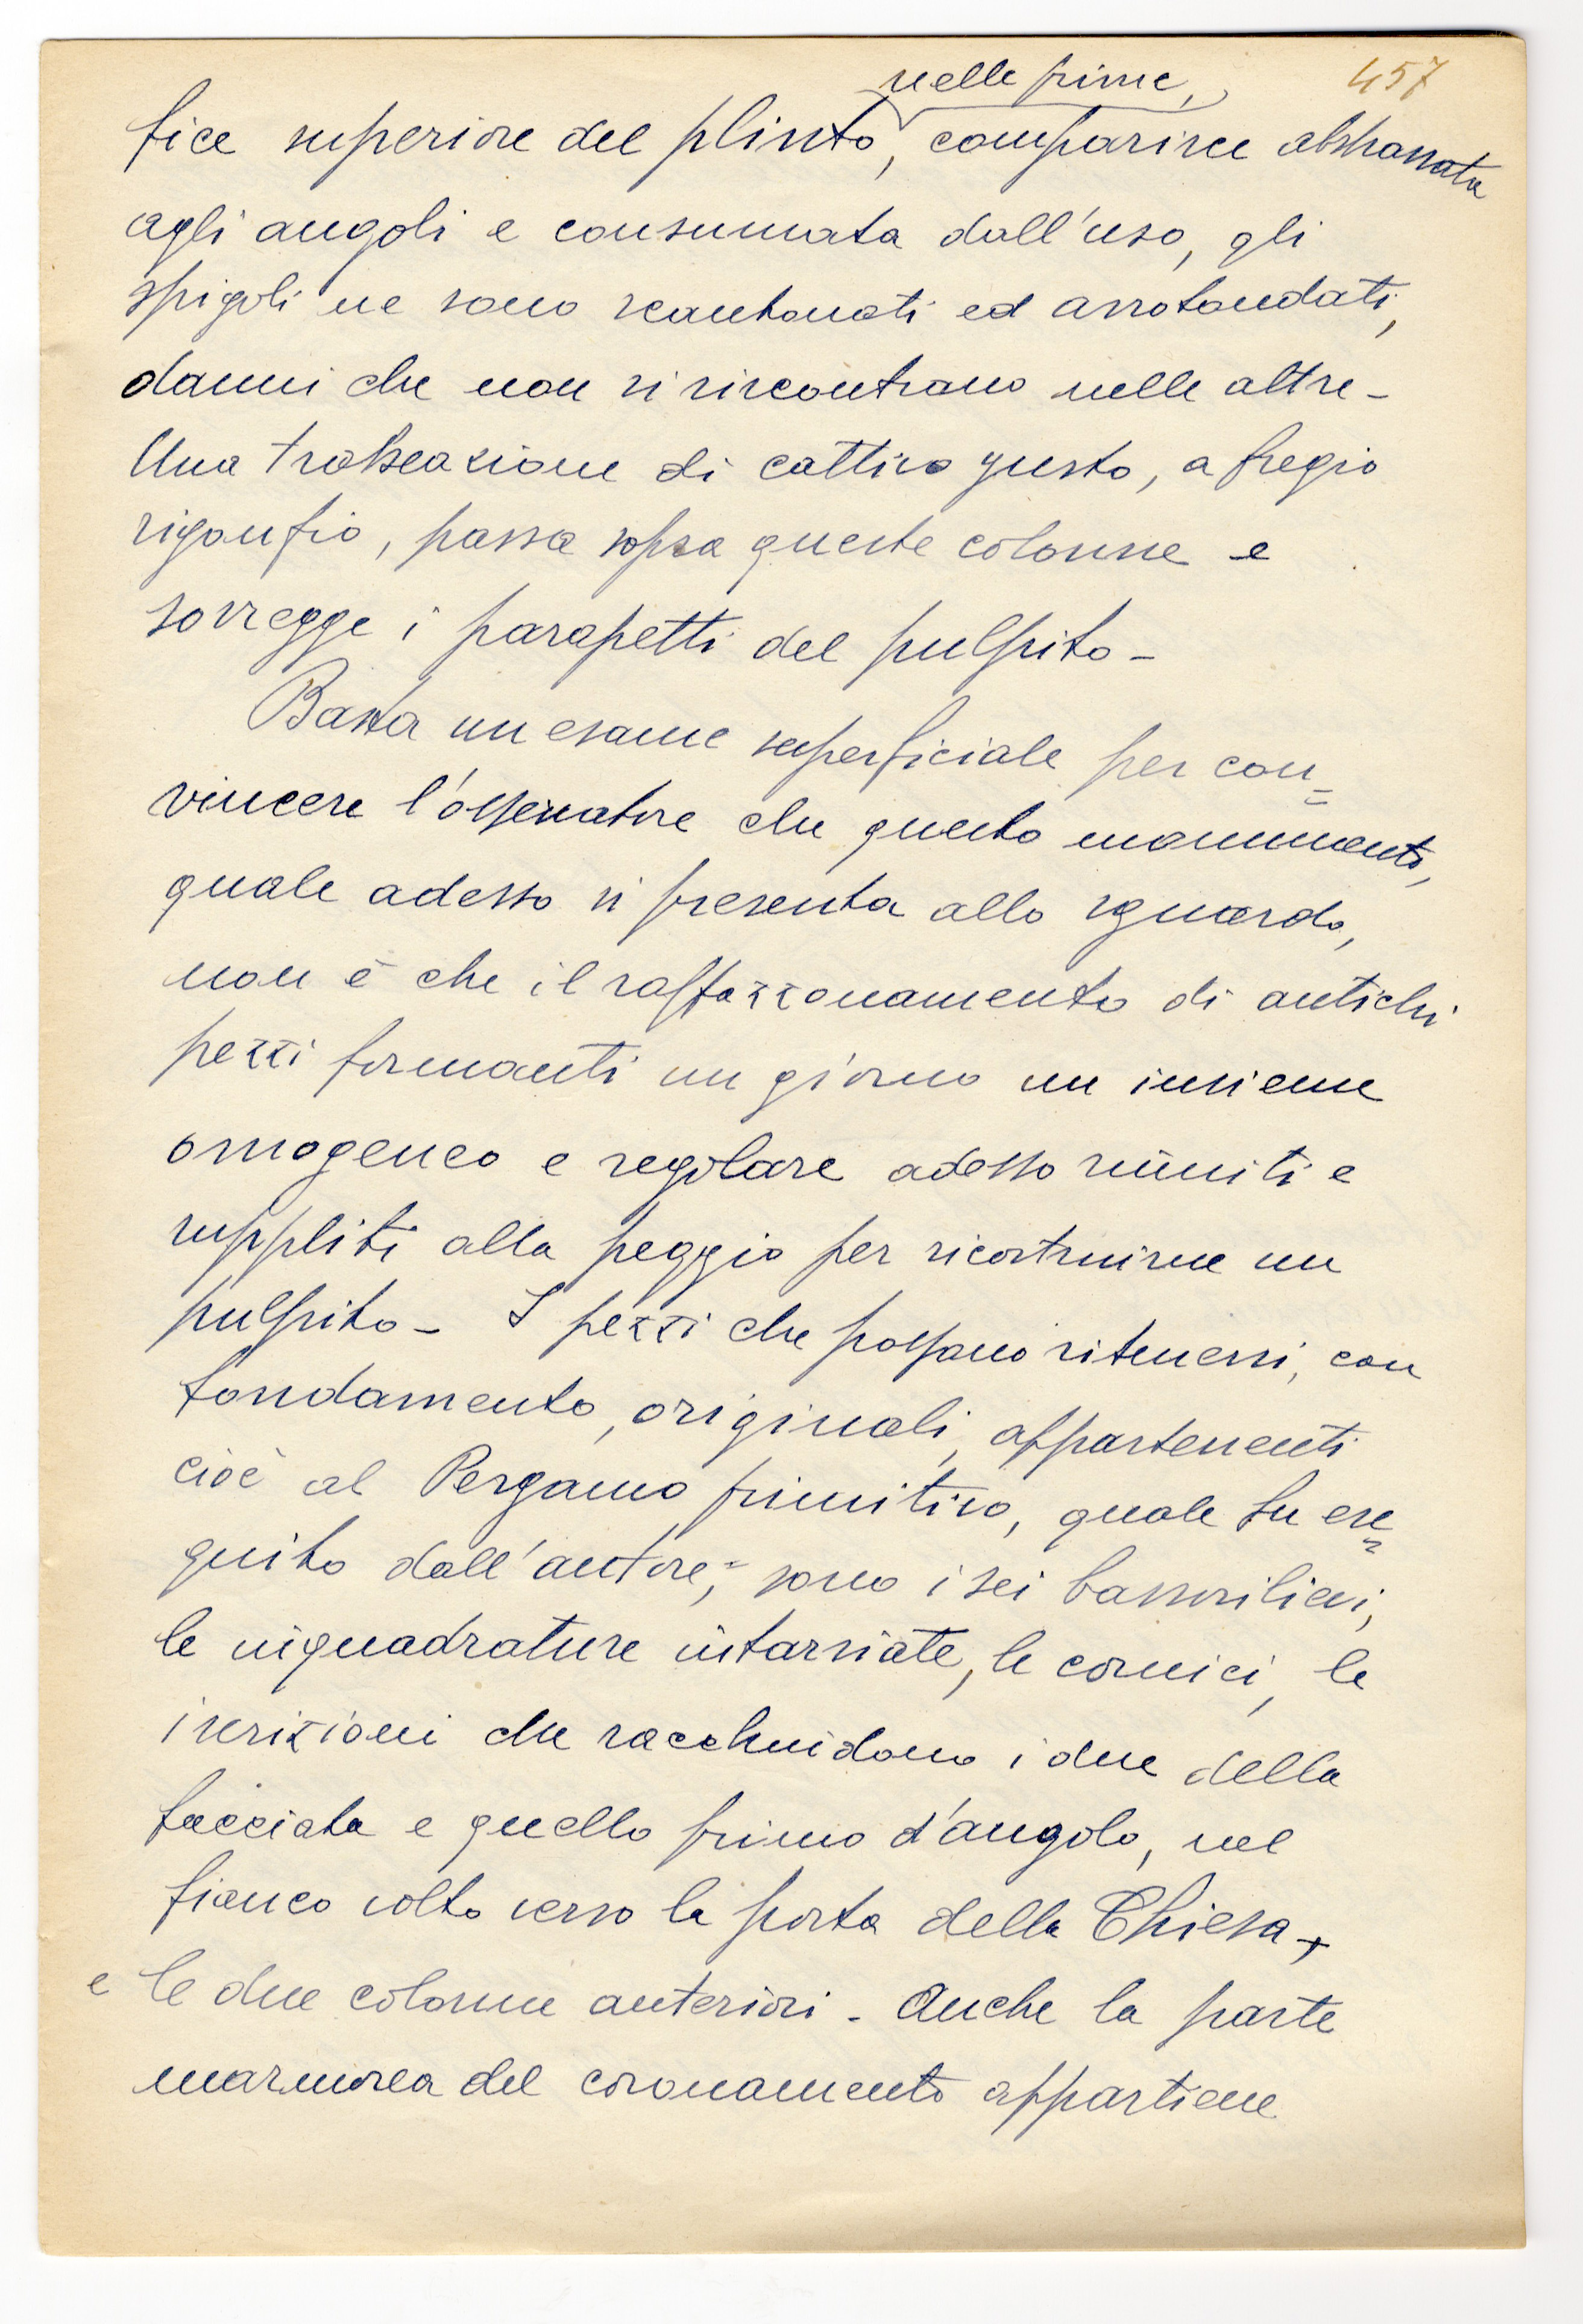 457
nelle prime,
fice superiore del plinto, comparisce abbassata
agli angoli e consumata dall'uso, gli
spigoli ne sono scantonati ed arrotondati,
danni che non si riscontrano nelle altre -
Una trabeazione di cattivo gusto, a fregio
rigonfio, passa sopra queste colonne e
sorregge i parapetti del pulpito -
Basta un esame superficiale per con=
vincere l'osservatore che questo monumento,
quale adesso si presenta allo sguardo,
non è che il raffazzonamento di antichi
pezzi formanti un giorno un insieme
omogeneo e regolare adesso riuniti e
suppliti alla peggio per ricostruirne un
pulpito - I pezzi che possano ritenersi, con
fondamento, originali, appartenenti
cioè al Pergamo primitivo, quale fu ese=
guito dall'autore, sono i sei bassorilievi,
le riquadrature intarsiate, le cornici, le
iscrizioni che racchiudono i due della
facciata e quello primo d'angolo, nel
fianco volto verso la porta della Chiesa,
e le due colonne anteriori - Anche la parte
marmorea del coronamento appartiene